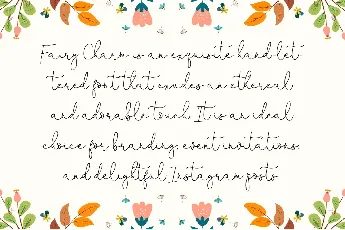 Fairy Charm is an exquisite hand let
tered font that exudes an ethereal
and adorable touch. It is an ideal
choice for branding, event invitations,
and delightful Instagram posts